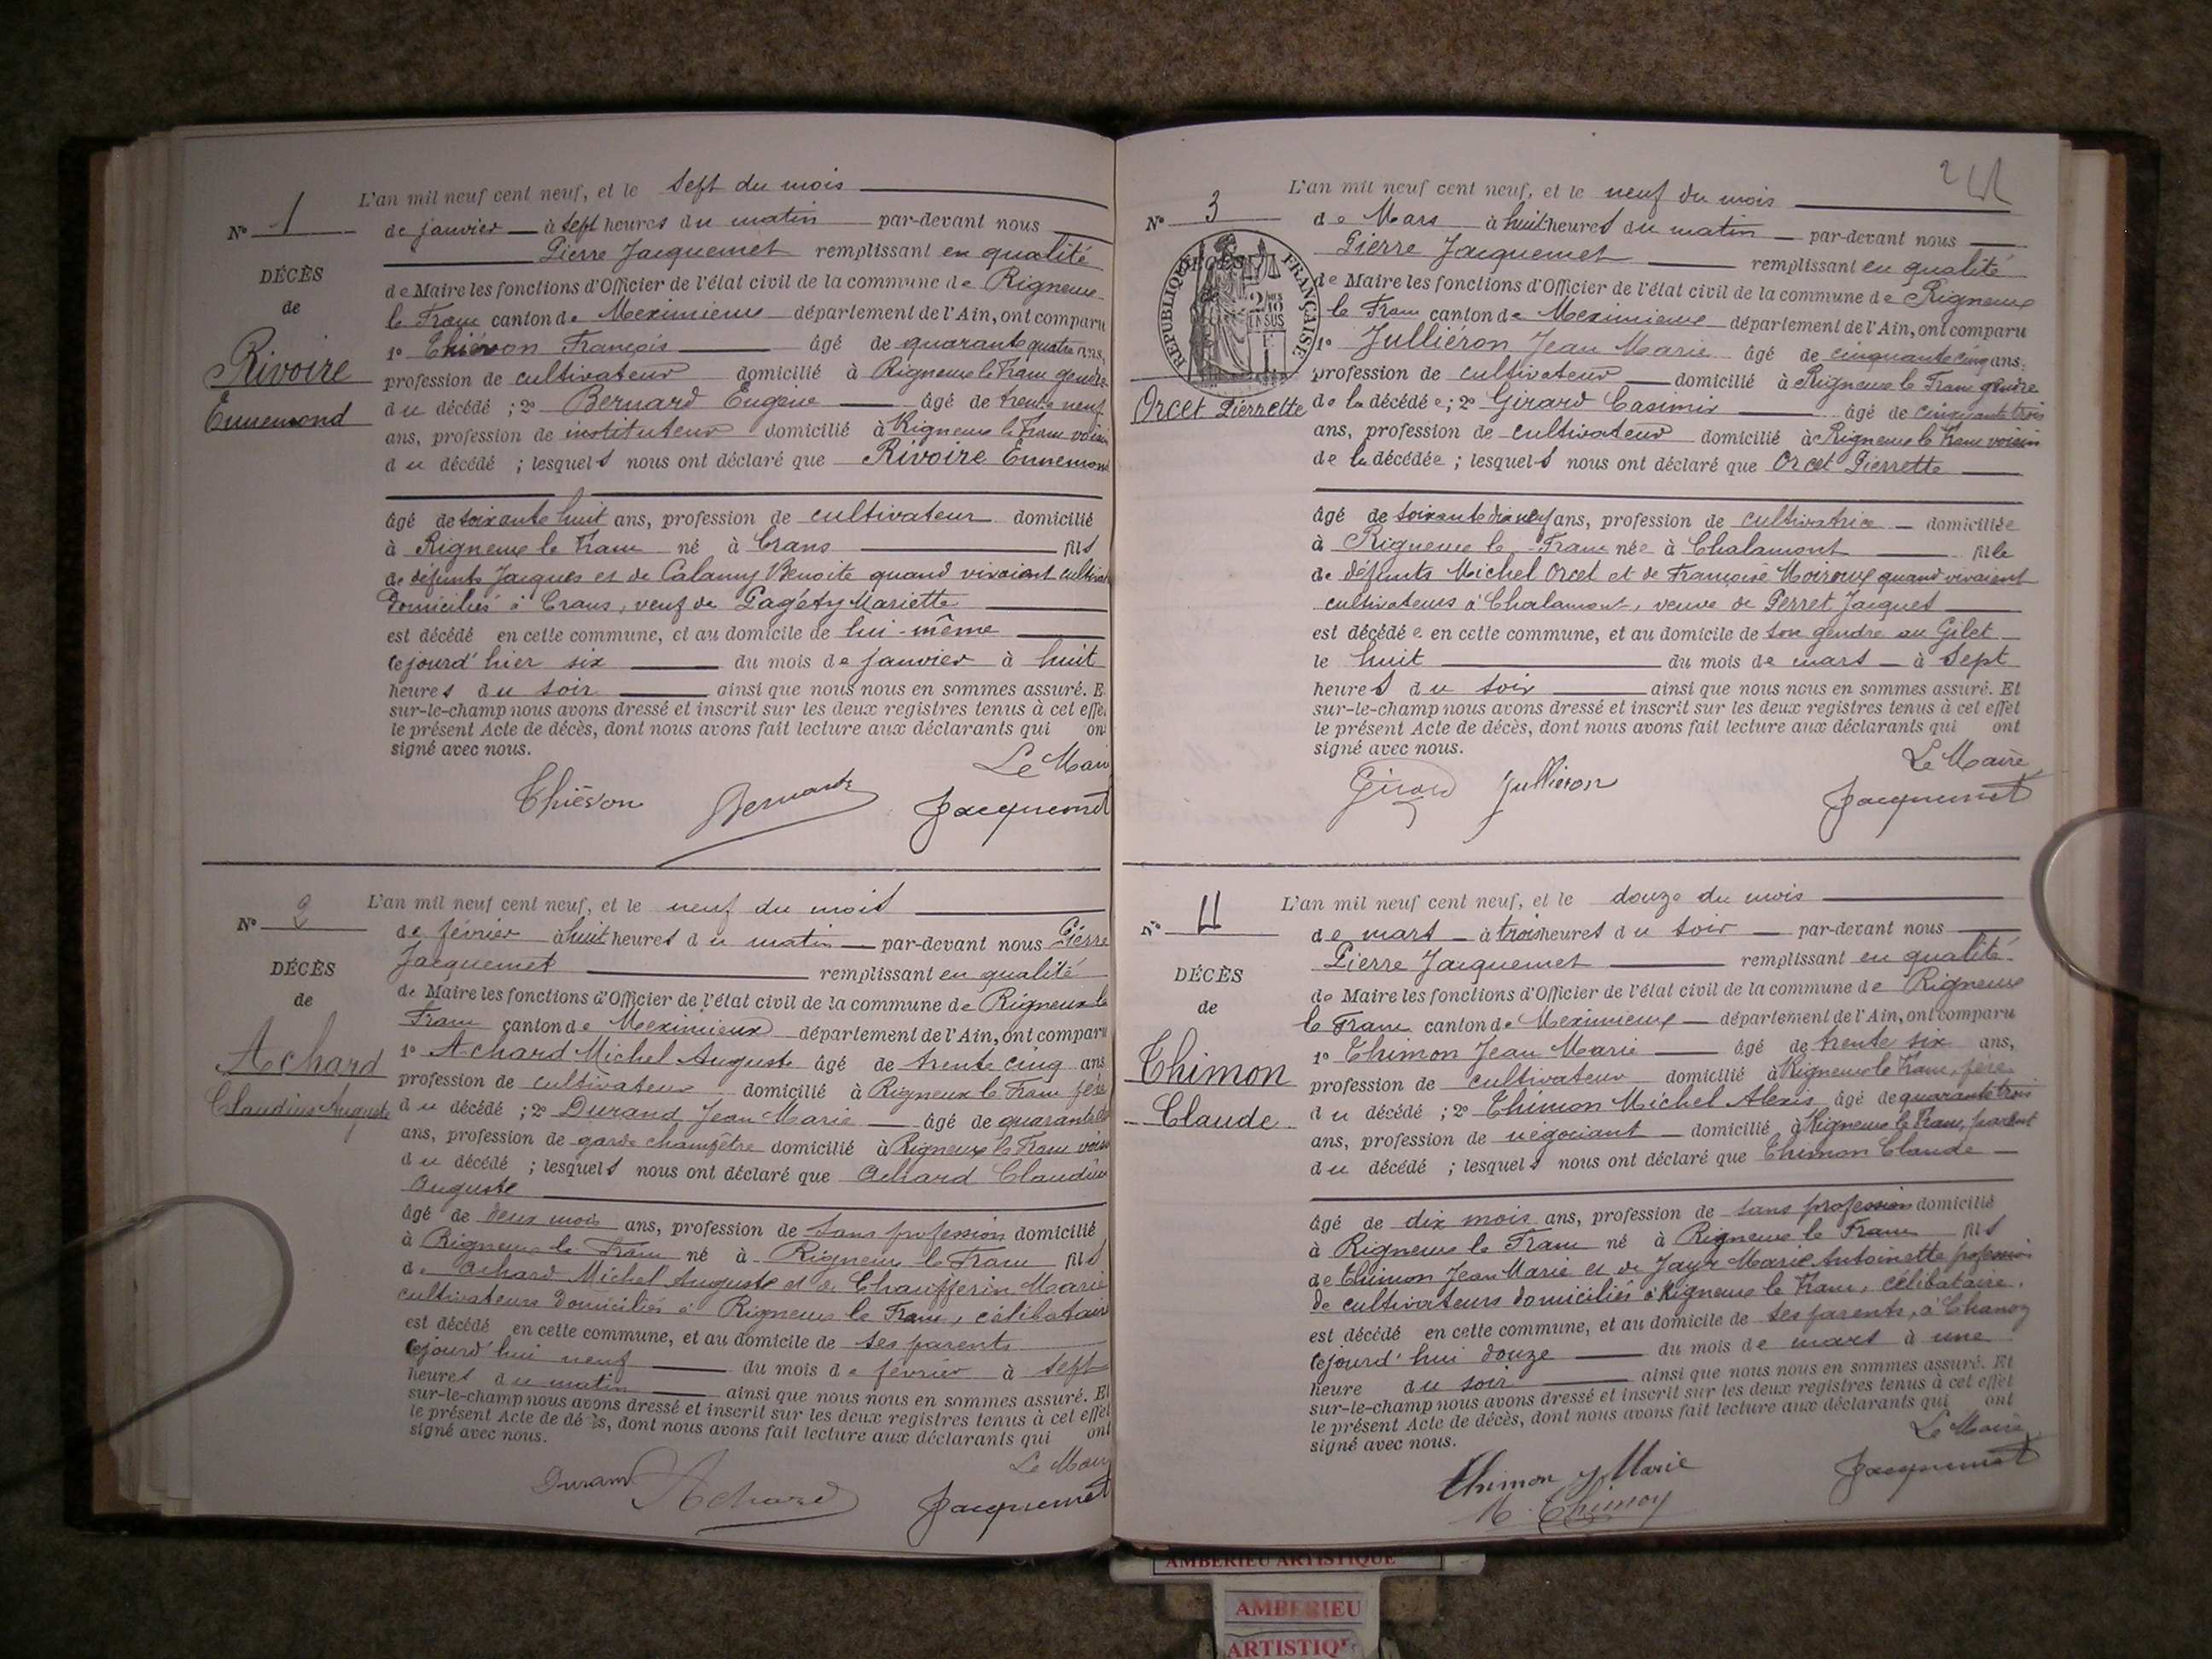 N° 1
DÉCÈS
de
Rivoire
Ennemond
L'an mil neuf cent neuf, et le sept du mois
de janvier à sept heures du matin par-devant nous
Pierre Jacquemet remplissant en qualité
de Maire les fonctions d'Officier de l'état civil de la commune de Rigneux
le Franc canton de Meximieux département de l'Ain, ont comparu
1° Thiévon François âgé de quarante quatre ans,
profession de cultivateur domicilié à Rigneux le Franc gendre
du décédé ; 2° Bernard Eugène âgé de trente neuf
ans, profession de instituteur domicilié à Rigneux le Franc voisin
du décédé ; lesquels nous ont déclaré que Rivoire Ennemond
âgé de soixante huit ans, profession de cultivateur domicilié
à Rigneux le Franc né à Crans fils
de défunts Jacques et de Calamy Benoite quand vivaient cultivat
domiciliés à Crans, veuf de Pagéty Mariette
est décédé en cette commune, et au domicile de lui-même
cejourd'hier six du mois de janvier à huit
heures du soir ainsi que nous nous en sommes assuré. E
sur-le-champ nous avons dressé et inscrit sur les deux registres tenus à cet effe
le présent Acte de décès, dont nous avons fait lecture aux déclarants qui on
signé avec nous.
Le Mair
Thiévon Bernard Jacquemet
N° 2
DÉCÈS
de
Achard
Claudius Auguste
L'an mil neuf cent neuf, et le neuf du mois
de février à huit heures du matin par-devant nous Pierre
Jacquemet remplissant en qualité
de Maire les fonctions d'Officier de l'état civil de la commune de Rigneux le
Franc canton de Meximieux département de l'Ain, ont comparu
1° Achard Michel Auguste âgé de trente cinq ans
profession de cultivateur domicilié à Rigneux le Franc père
du décédé ; 2° Durand Jean Marie âgé de quarante
ans, profession de garde champêtre domicilié à Rigneux le Franc voisin
du décédé ; lesquels nous ont déclaré que Achard Claudius
Auguste
âgé de deux mois ans, profession de sans profession domicilié
à Rigneux le Franc né à Rigneux le Franc fils
de Achard Michel Auguste et de Chaufferin Marie
cultivateurs domiciliés à Rigneux le Franc, célibataire
est décédé en cette commune, et au domicile de ses parents
cejourd'hui neuf du mois de février à sept
heures du matin ainsi que nous nous en sommes assuré. Et
sur-le-champ nous avons dressé et inscrit sur les deux registres tenus à cet effet
le présent Acte de dé ès, dont nous avons fait lecture aux déclarants qui ont
signé avec nous.
Le Mair
Durand Achard Jacquemet
N° 3
DÉCÈS
RÉPUBLIQUE FRANÇAISE
2/10 EN SUS
Orcet Pierrette
L'an mil neuf cent neuf, et le neuf du mois
de Mars à huit heures du matin par-devant nous
Pierre Jacquemet remplissant en qualité
de Maire les fonctions d'Officier de l'état civil de la commune de Rigneux
le Franc canton de Meximieux département de l'Ain, ont comparu
1° Julliéron Jean Marie âgé de cinquante cinq ans,
profession de cultivateur domicilié à Rigneux le Franc gendre
de la décédée ; 2° Girard Casimir âgé de cinquante trois
ans, profession de cultivateur domicilié à Rigneux le Franc voisin
de la décédée ; lesquels nous ont déclaré que Orcet Pierrette
âgé de soixante dix neuf ans, profession de cultivatrice domiciliée
à Rigneux le Franc née à Chalamont fille
de défunts Michel Orcet et de Françoise Moiroux quand vivaient
cultivateurs à Chalamont, veuve de Perret Jacques
est décédée en cette commune, et au domicile de son gendre au Gilet
le huit du mois de mars à sept
heures du soir ainsi que nous nous en sommes assuré. Et
sur-le-champ nous avons dressé et inscrit sur les deux registres tenus à cet effet
le présent Acte de décès, dont nous avons fait lecture aux déclarants qui ont
signé avec nous.
Le Maire
Girard Jullieron Jacquemet
N° 4
DÉCÈS
de
Thimon
Claude
L'an mil neuf cent neuf, et le douze du mois
de mars à trois heures du soir par-devant nous
Pierre Jacquemet remplissant en qualité
de Maire les fonctions d'Officier de l'état civil de la commune de Rigneux
le Franc canton de Meximieux département de l'Ain, ont comparu
1° Thimon Jean Marie âgé de trente six ans,
profession de cultivateur domicilié à Rigneux le Franc, père
du décédé ; 2° Thimon Michel Alexis âgé de quarante trois
ans, profession de négociant domicilié à Rigneux le Franc, parent
du décédé ; lesquels nous ont déclaré que Thimon Claude
âgé de dix mois ans, profession de sans profession domicilié
à Rigneux le Franc né à Rigneux le Franc fils
de Thimon Jean Marie et de Jayr Marie Antoinette profession
de cultivateurs domiciliés à Rigneux le Franc, célibataire.
est décédé en cette commune, et au domicile de ses parents, à Chanoz
cejourd'hui douze du mois de mars à une
heure du soir ainsi que nous nous en sommes assuré. Et
sur-le-champ nous avons dressé et inscrit sur les deux registres tenus à cet effet
le présent Acte de décès, dont nous avons fait lecture aux déclarants qui ont
signé avec nous.
Le Maire
Thimon J Marie Jacquemet
M. Thimon
AMBERIEU ARTISTIQUE
AMBERIEU
ARTISTIQU